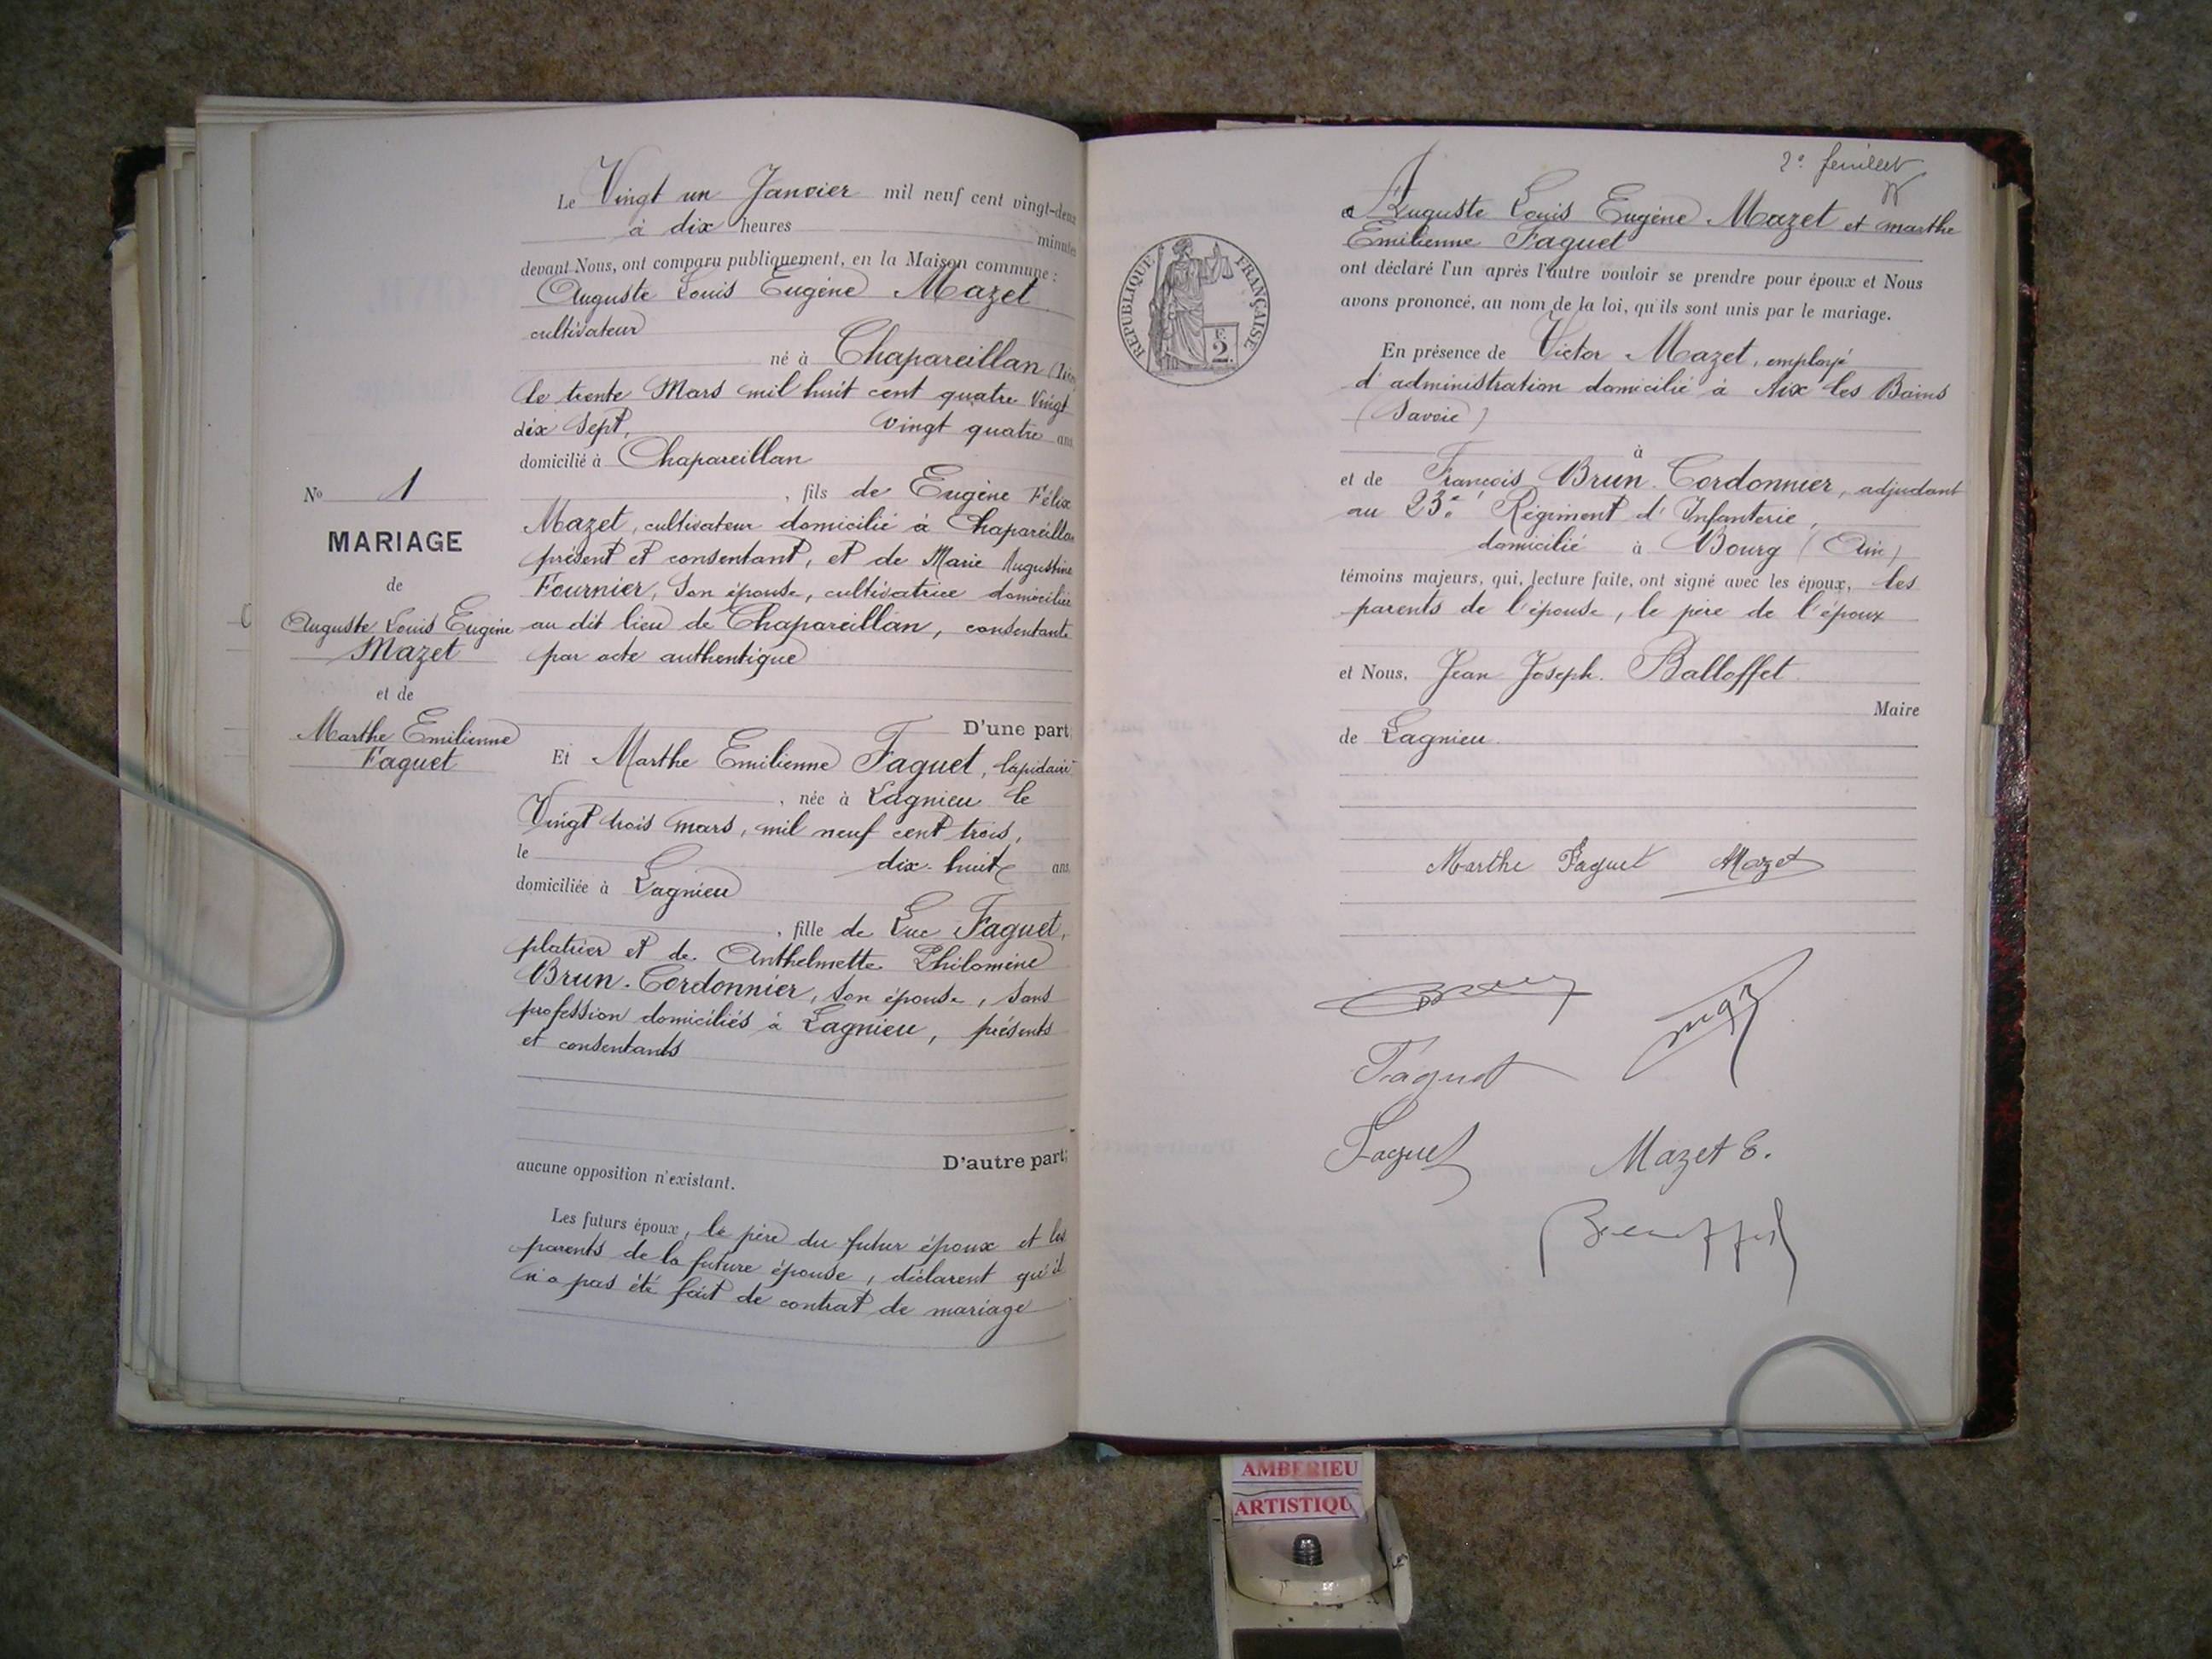 Le Vingt un Janvier mil neuf cent vingt-deux
à dix heures minutes
devant Nous, ont comparu publiquement, en la Maison commune :
Auguste Louis Eugène Mazet
cultivateur
né à Chapareillan
le trente Mars mil huit cent quatre Vingt
dix Sept, vingt quatre ans
domicilié à Chapareillan
, fils de Eugène Félix
Mazet, cultivateur domicilié à Chapareillan
présent et consentant, et de Marie Augustine
Fournier, Son épouse, cultivatrice domiciliée
au dit lieu de Chapareillan, consentante
par acte authentique
D'une part;
Et Marthe Emilienne Faguet, lapidaire
, née à Lagnieu le
Vingt trois mars, mil neuf cent trois,
le dix-huit ans
domiciliée à Lagnieu
, fille de Luc Faguet,
platrier et de Anthelmette Philomène
Brun-Cordonnier, son épouse, sans
profession domiciliés à Lagnieu, présents
et consentants
D'autre part;
aucune opposition n'existant.
Les futurs époux, le père du futur époux et les
parents de la future épouse, déclarent qu'il
n'a pas été fait de contrat de mariage
No 1
MARIAGE
de
Auguste Louis Eugène
Mazet
et de
Marthe Emilienne
Faguet
2e feuillet
Auguste Louis Eugène Mazet et marthe
Emilienne Faguet
ont déclaré l'un après l'autre vouloir se prendre pour époux et Nous
avons prononcé, au nom de la loi, qu'ils sont unis par le mariage.
En présence de Victor Mazet, employé
d'administration domicilié à Aix les Bains
(Savoie)
à
et de François Brun-Cordonnier, adjudant
au 23e Régiment d'Infanterie,
domicilié à Bourg (Ain)
témoins majeurs, qui, lecture faite, ont signé avec les époux, les
parents de l'épouse, le père de l'époux
et Nous, Jean Joseph Balloffet
Maire
de Lagnieu
RÉPUBLIQUE FRANÇAISE
2F.
Marthe Faguet Mazet
Faguet
Faguet Mazet E.
AMBERIEU
ARTISTIQU